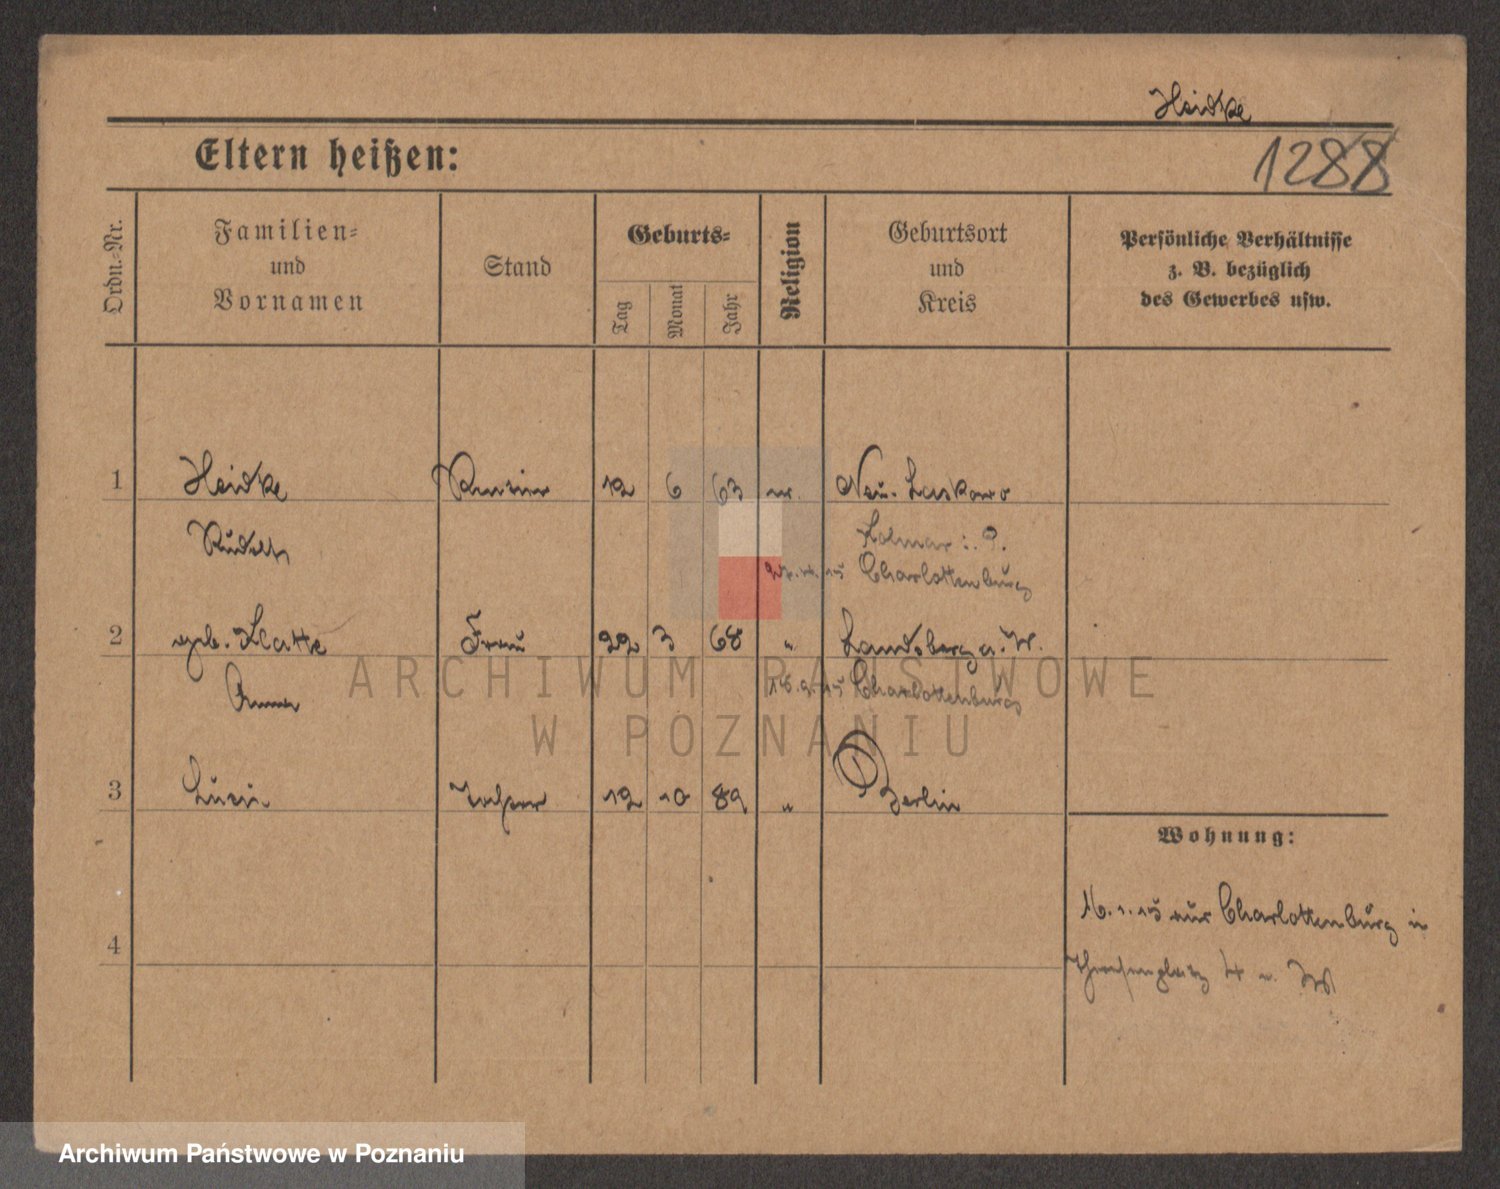 Heidke
1288
Eltern heißen:
Ordn.-Nr.
Familien-
und
Vornamen
Stand
Geburts-
Tag
Monat
Jahr
Religion
Geburtsort
und
Kreis
Persönliche Verhältnisse
z. B. bezüglich
des Gewerbes usw.
1 Heidke Rentier 12 6 63 ev. Neu-Laskowo
Rudolf Kolmar i. P.
15 Charlottenburg
2 geb. Klatte Frau 22 3 68 " Landsberg a. W.
Anna 15 Charlottenburg
3 Luzie Tochter 12 10 89 " Berlin
Wohnung:
16.1.15 aus Charlottenburg in
4
ARCHIWUM PAŃSTWOWE
W POZNANIU
Archiwum Państwowe w Poznaniu